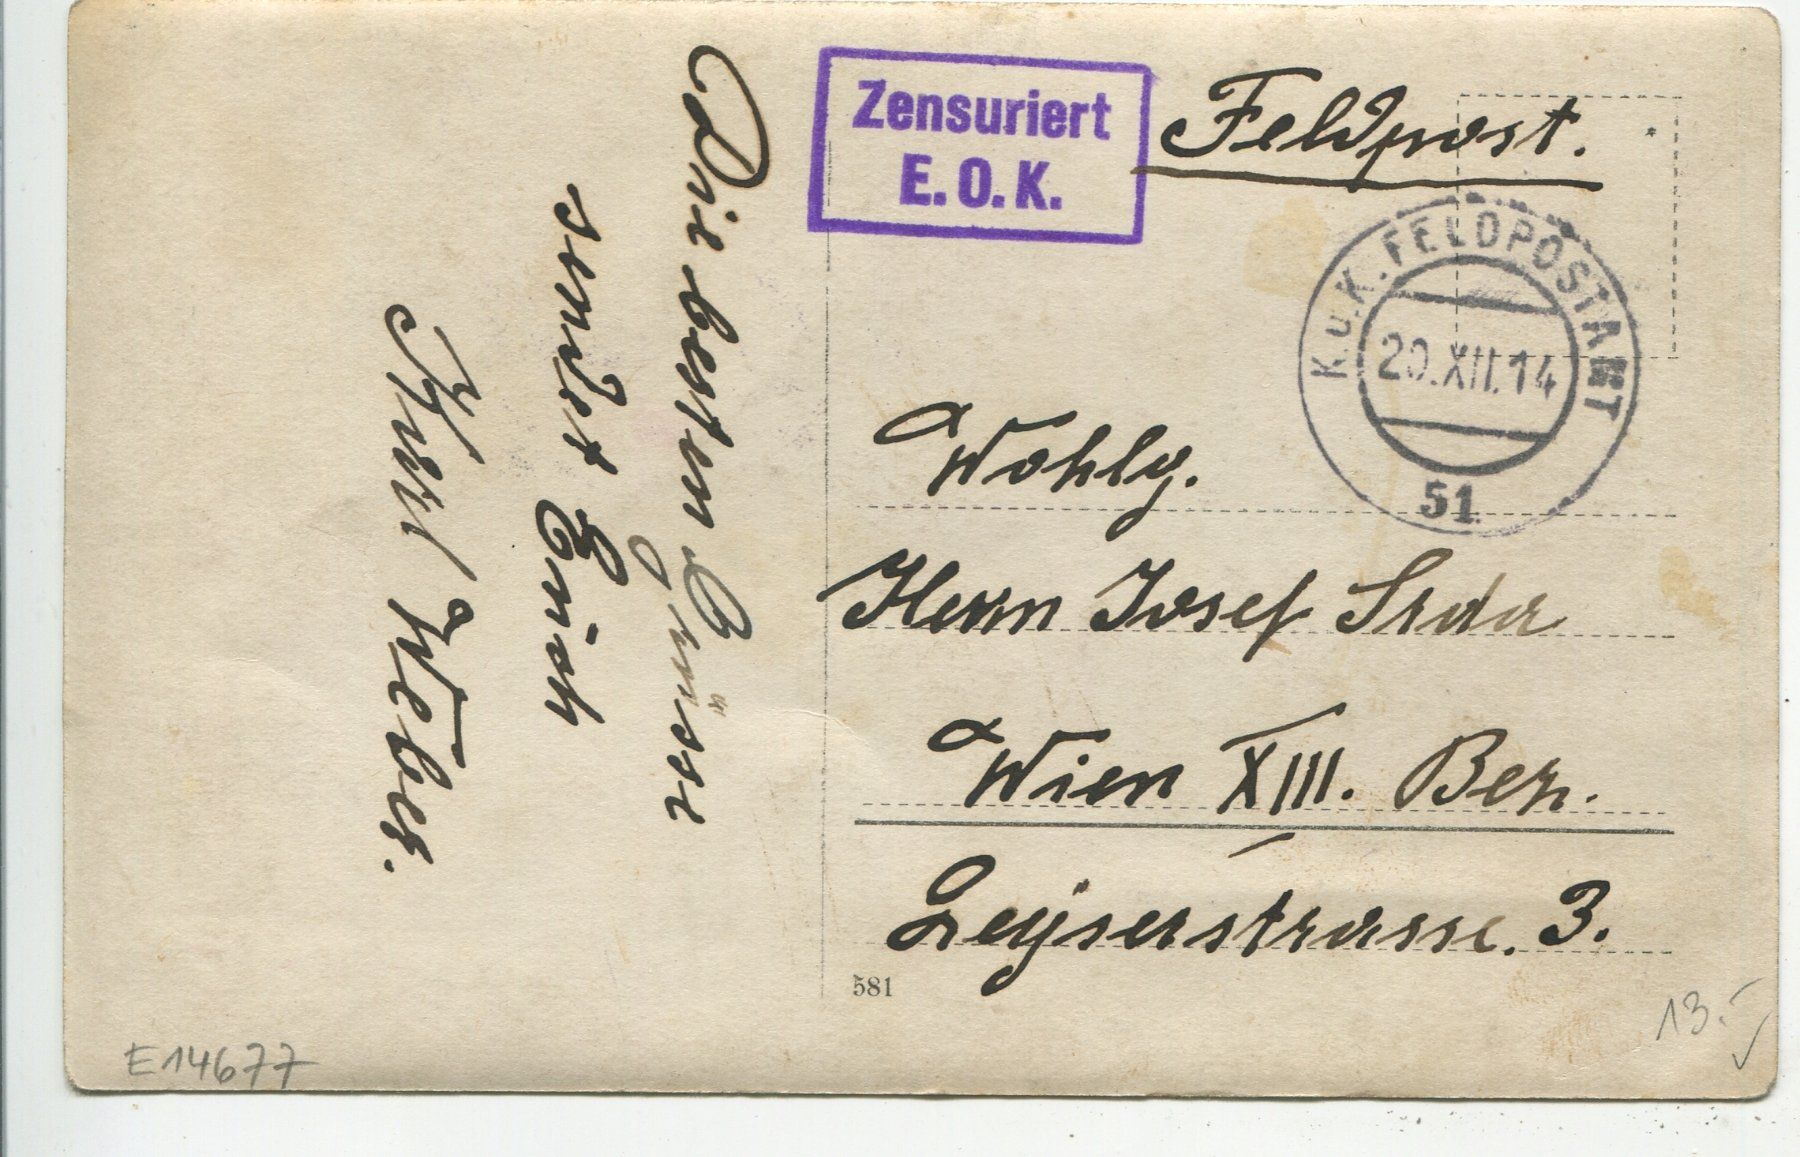 Die besten Grüsse
sendet Euch
Karl Weber.
Zensuriert
E.O.K.
Feldpost.
K.u.K. FELDPOSTAMT
20.XII.14
51
Wohlg.
Herrn Josef Srda
Wien XIII. Bez.
Leyserstrasse. 3.
581
E14677
13.-